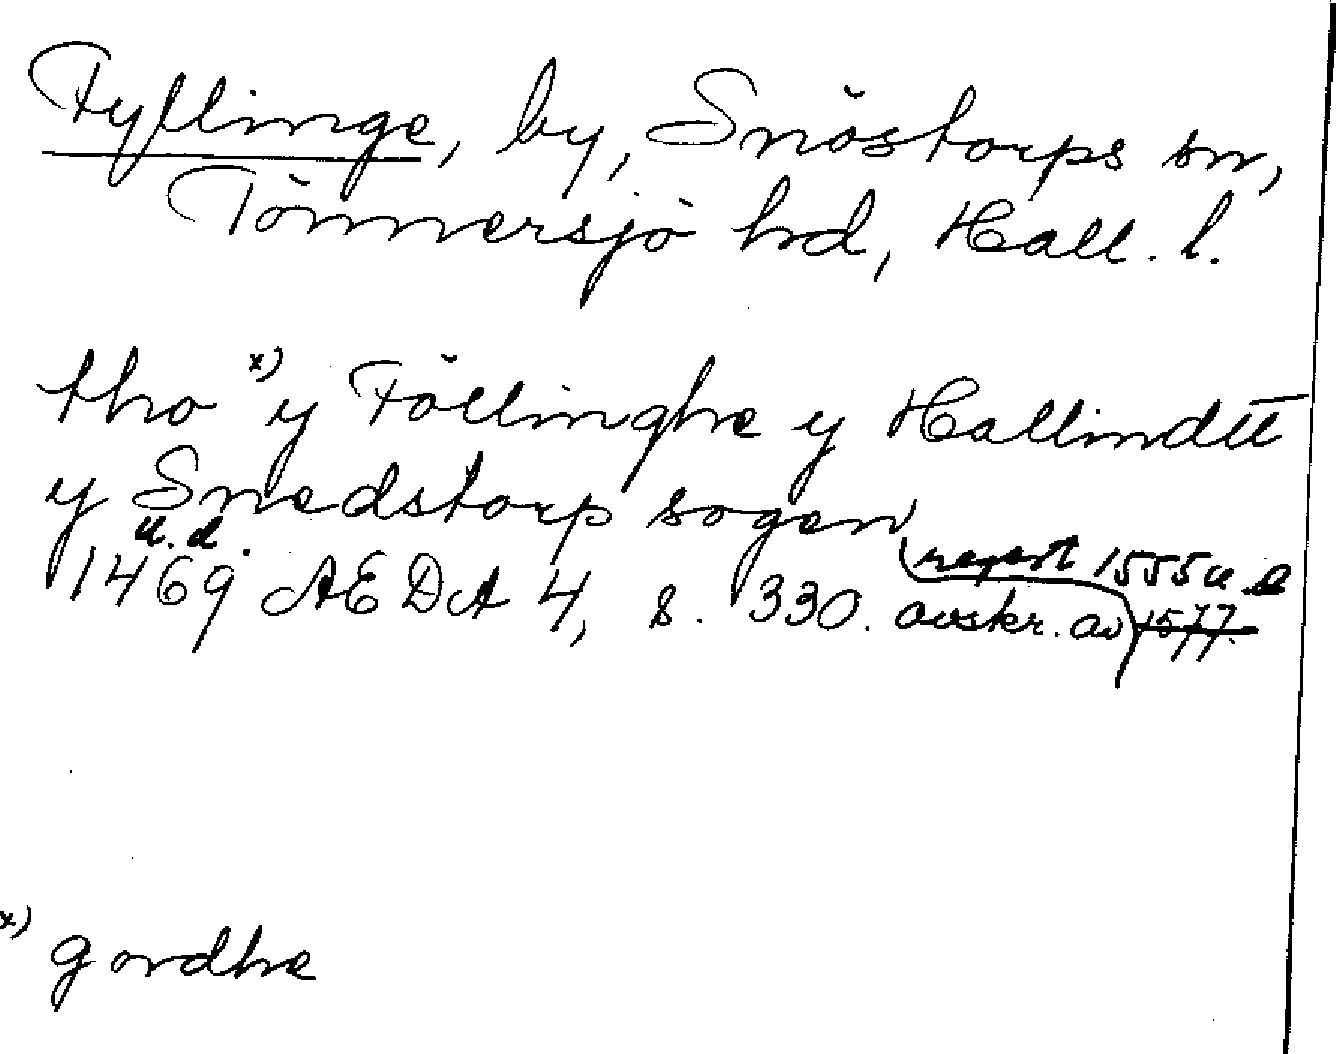 Fyllinge, by, Snöstorps sn,
Tönnersjö hd, Hall. l.
tho x) y Föllinghe y Hallindtt
y Snedstorp sogen
u. d.
1469 AEDA 4, s. 330. avskr. av 1577.
repert 1555 u. d
x) gordhe